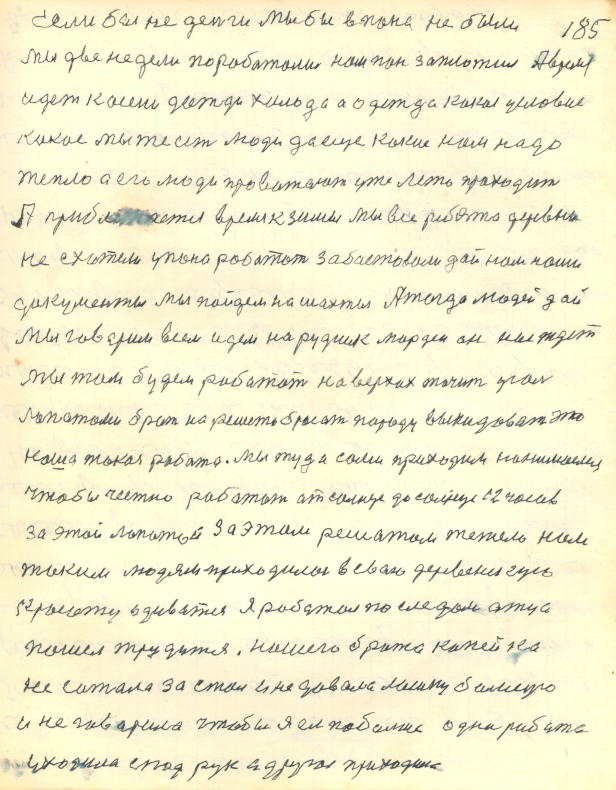 185
Если бы не деньги мы бы в пона не были
мы две недели поработоли нам пон заплотил А время
идет косени дажди холода а одежда какая условие
какое мы тесто люди да еще какие нам надо
тепло а его люди проважают уже лето праходит
А приближается время к зимы мы все ребята деревни
не схатели у пона работат забастовали дай нам наши
документы мы пойдем на шахты А тогда людей дай
мы говарим всем идем на рудник мордеи он нас ждет
мы там будем работат наверхах точит угол
лопатами брат на решето бросат породу выкидоват это
наша такая работа. мы туда сами приходим нанимаемся
чтобы честно работат ат солнце до солнце 12 часов
за этой лопатой за этом решатом тежело нам
таким людям приходилос в сваю деревенскую
красоту одиватся я работал по следам атца
пошел трудится. нашего брата капейка
не сотала за стол и не довала
и не говарила чтобы я ел поболше одна работа
уходила с под рук а другая приходила